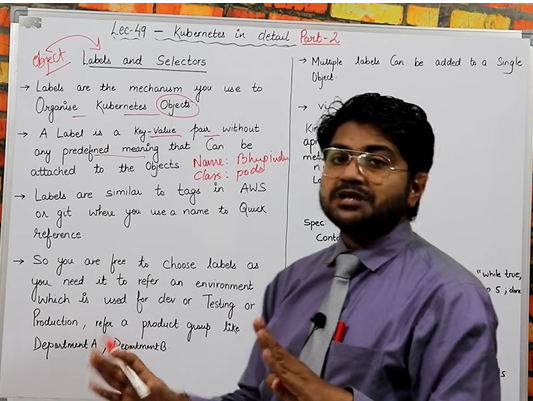 Lec-49 – Kubernetes in detail Part-2
Object
Labels and Selectors
→ Labels are the mechanism you use to
Organise Kubernetes Objects
→ A Label is a key-value pair without
any predefined meaning that Can be
attached to the Objects
Name: Bhupinder
Class: pods
→ Labels are similar to tags in AWS
or git where you use a name to Quick
reference
→ So you are free to choose labels as
you need it to refer an environment
which is used for dev or Testing or
Production, refer a product group like
Department A, Department B
→ Multiple labels Can be added to a Single
Object.
Spec:
"while true,
5; done